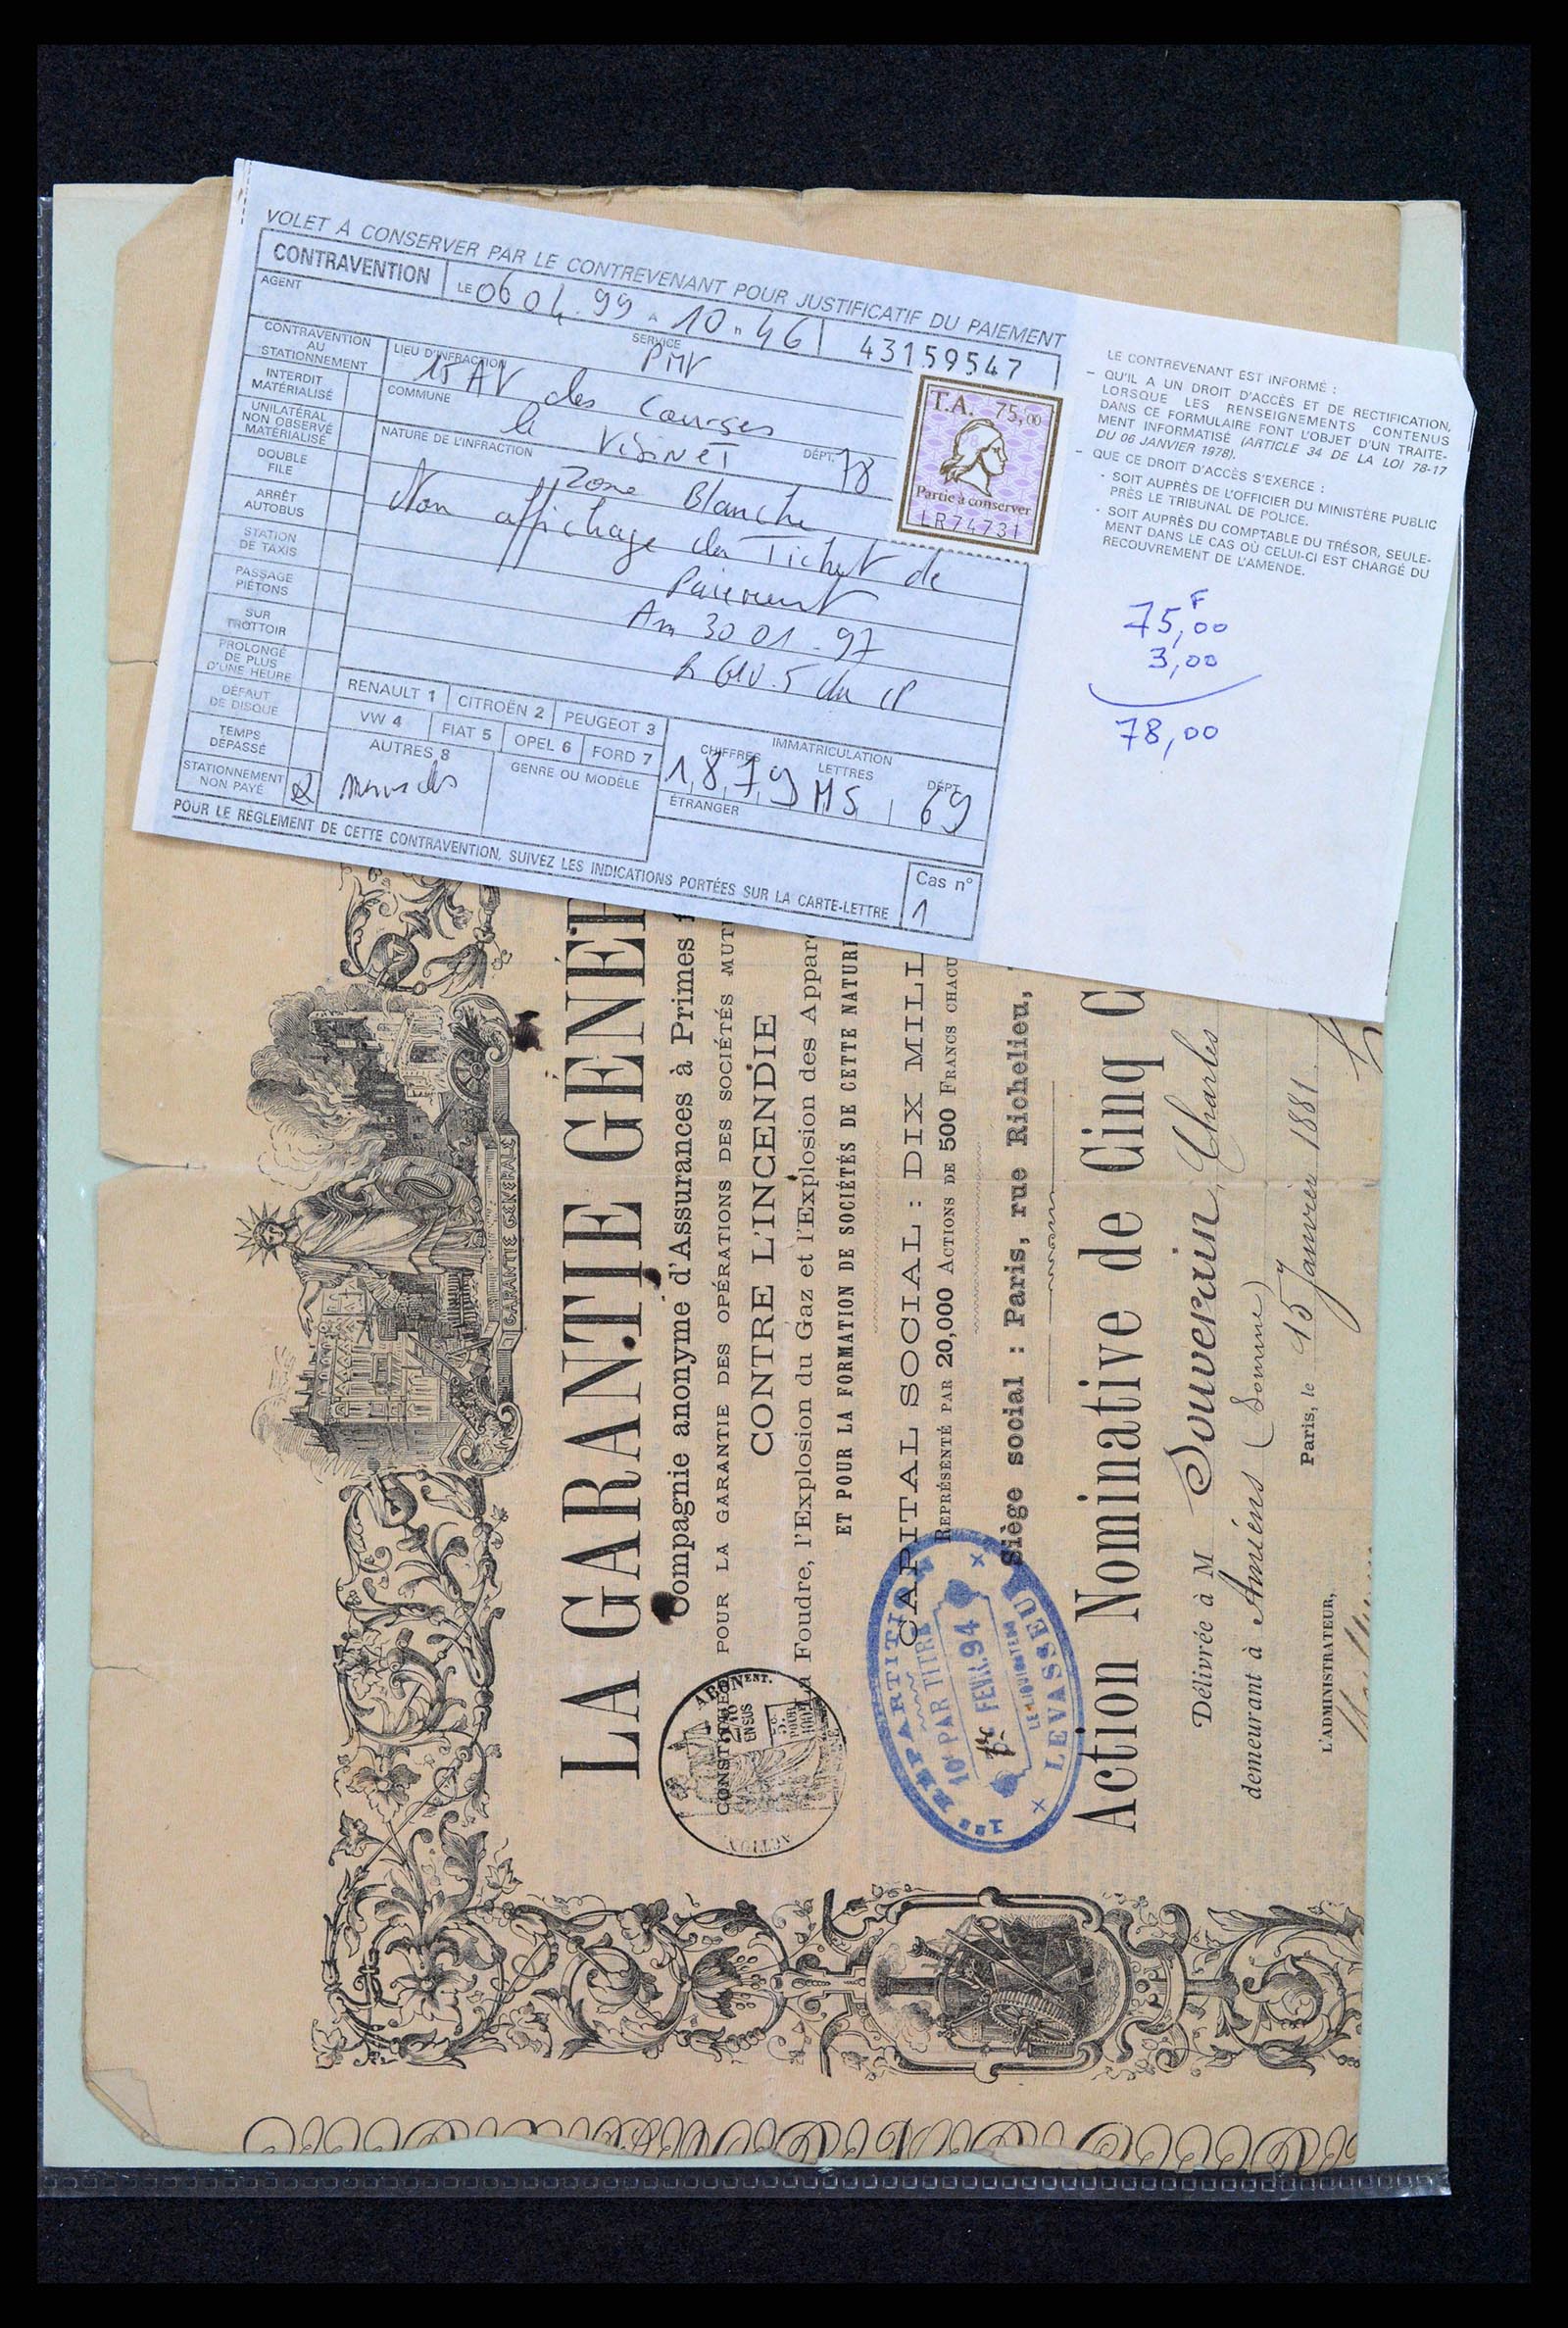 VOLET À CONSERVER PAR LE CONTREVENANT POUR JUSTIFICATIF DU PAIEMENT
CONTRAVENTION LE 06 04.99 A 10 H 46 43159547
AGENT SERVICE
PMV
CONTRAVENTION AU STATIONNEMENT
LIEU D'INFRACTION
15 AV des Courses
COMMUNE
le Vésinet DÉPT. 78
NATURE DE L'INFRACTION
Zone Blanche
Non affichage du Ticket de
Paiement
Am 30 01.97
R 610.5 du CP
INTERDIT MATÉRIALISÉ
UNILATÉRAL NON OBSERVÉ MATÉRIALISÉ
DOUBLE FILE
ARRÊT AUTOBUS
STATION DE TAXIS
PASSAGE PIÉTONS
SUR TROTTOIR
PROLONGÉ DE PLUS D'UNE HEURE
DÉFAUT DE DISQUE
TEMPS DÉPASSÉ
STATIONNEMENT NON PAYÉ
RENAULT 1 CITROËN 2 PEUGEOT 3
VW 4 FIAT 5 OPEL 6 FORD 7
AUTRES 8
GENRE OU MODÈLE
IMMATRICULATION
CHIFFRES LETTRES DÉPT.
1879 MS 69
ÉTRANGER
POUR LE RÈGLEMENT DE CETTE CONTRAVENTION, SUIVEZ LES INDICATIONS PORTÉES SUR LA CARTE-LETTRE
Cas n°
1
T.A. 75,00
Partie à conserver
LR74731
LE CONTREVENANT EST INFORMÉ :
– QU'IL A UN DROIT D'ACCÈS ET DE RECTIFICATION,
LORSQUE LES RENSEIGNEMENTS CONTENUS
DANS CE FORMULAIRE FONT L'OBJET D'UN TRAITE-
MENT INFORMATISÉ (ARTICLE 34 DE LA LOI 78-17
DU 06 JANVIER 1978).
– QUE CE DROIT D'ACCÈS S'EXERCE :
· SOIT AUPRÈS DE L'OFFICIER DU MINISTÈRE PUBLIC
PRÈS LE TRIBUNAL DE POLICE.
· SOIT AUPRÈS DU COMPTABLE DU TRÉSOR, SEULE-
MENT DANS LE CAS OÙ CELUI-CI EST CHARGÉ DU
RECOUVREMENT DE L'AMENDE.
75,00 F
3,00
78,00
GARANTIE GÉNÉRALE
LA GARANTIE GÉNÉ
Compagnie anonyme d'Assurances à Primes
CONSTITUÉE POUR LA GARANTIE DES OPÉRATIONS DES SOCIÉTÉS MUT
CONTRE L'INCENDIE
la Foudre, l'Explosion du Gaz et l'Explosion des Appar
ET POUR LA FORMATION DE SOCIÉTÉS DE CETTE NATURE
CAPITAL SOCIAL : DIX MILL
REPRÉSENTÉ PAR 20,000 ACTIONS DE 500 FRANCS CHACU
Siège social : Paris, rue Richelieu,
Action Nominative de Cinq C
Délivrée à M Souverain, Charles
demeurant à Amiens (Somme)
Paris, le 15 Janvier 1881.
L'ADMINISTRATEUR,
ABONEST.
2/10 EN SUS
5c. POUR 100f
ACTION
1re RÉPARTITION
10f PAR TITRE
FEVR. 94
LE LIQUIDATEUR
LEVASSEUR